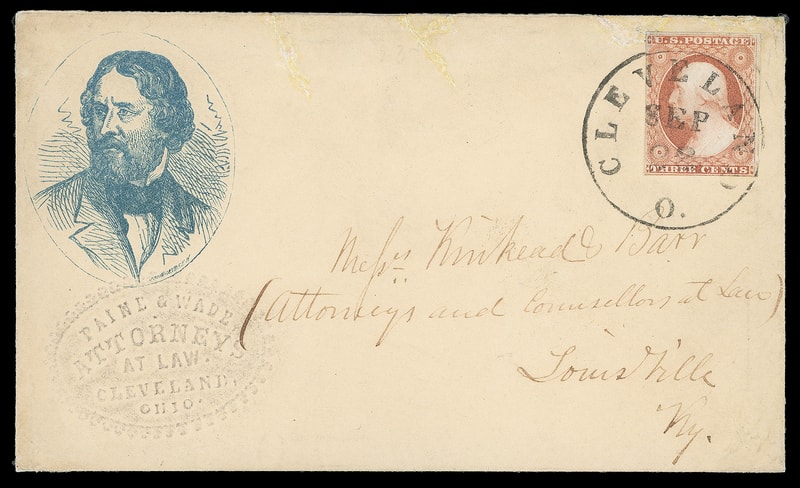 U.S. POSTAGE
THREE CENTS
CLEVELAND
SEP
O.
Messrs Kinkead & Barr
(Attorneys and Counsellors at Law)
Louisville
Ky.
PAINE & WADE
ATTORNEYS
AT LAW.
CLEVELAND,
OHIO.